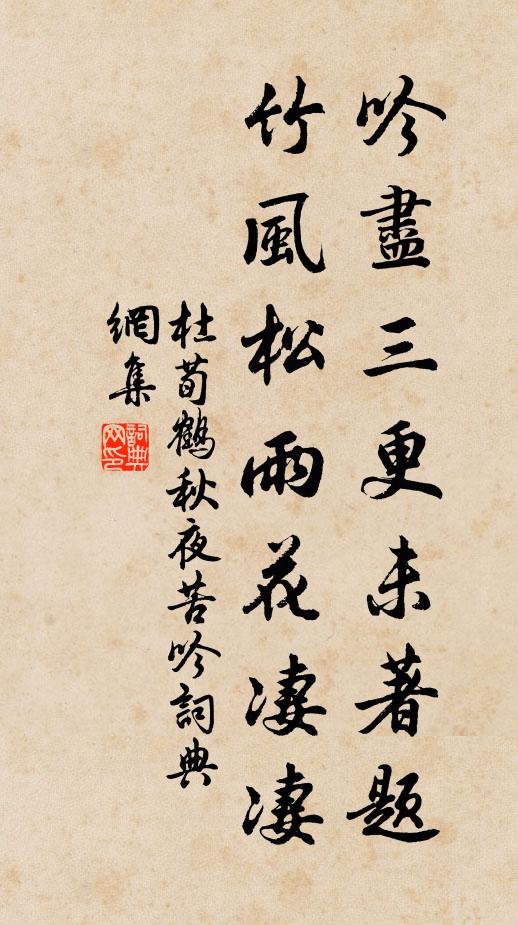 吟盡三更未著題
竹風松雨花凄凄
杜荀鶴秋夜苦吟詞典
網集
詞典網印